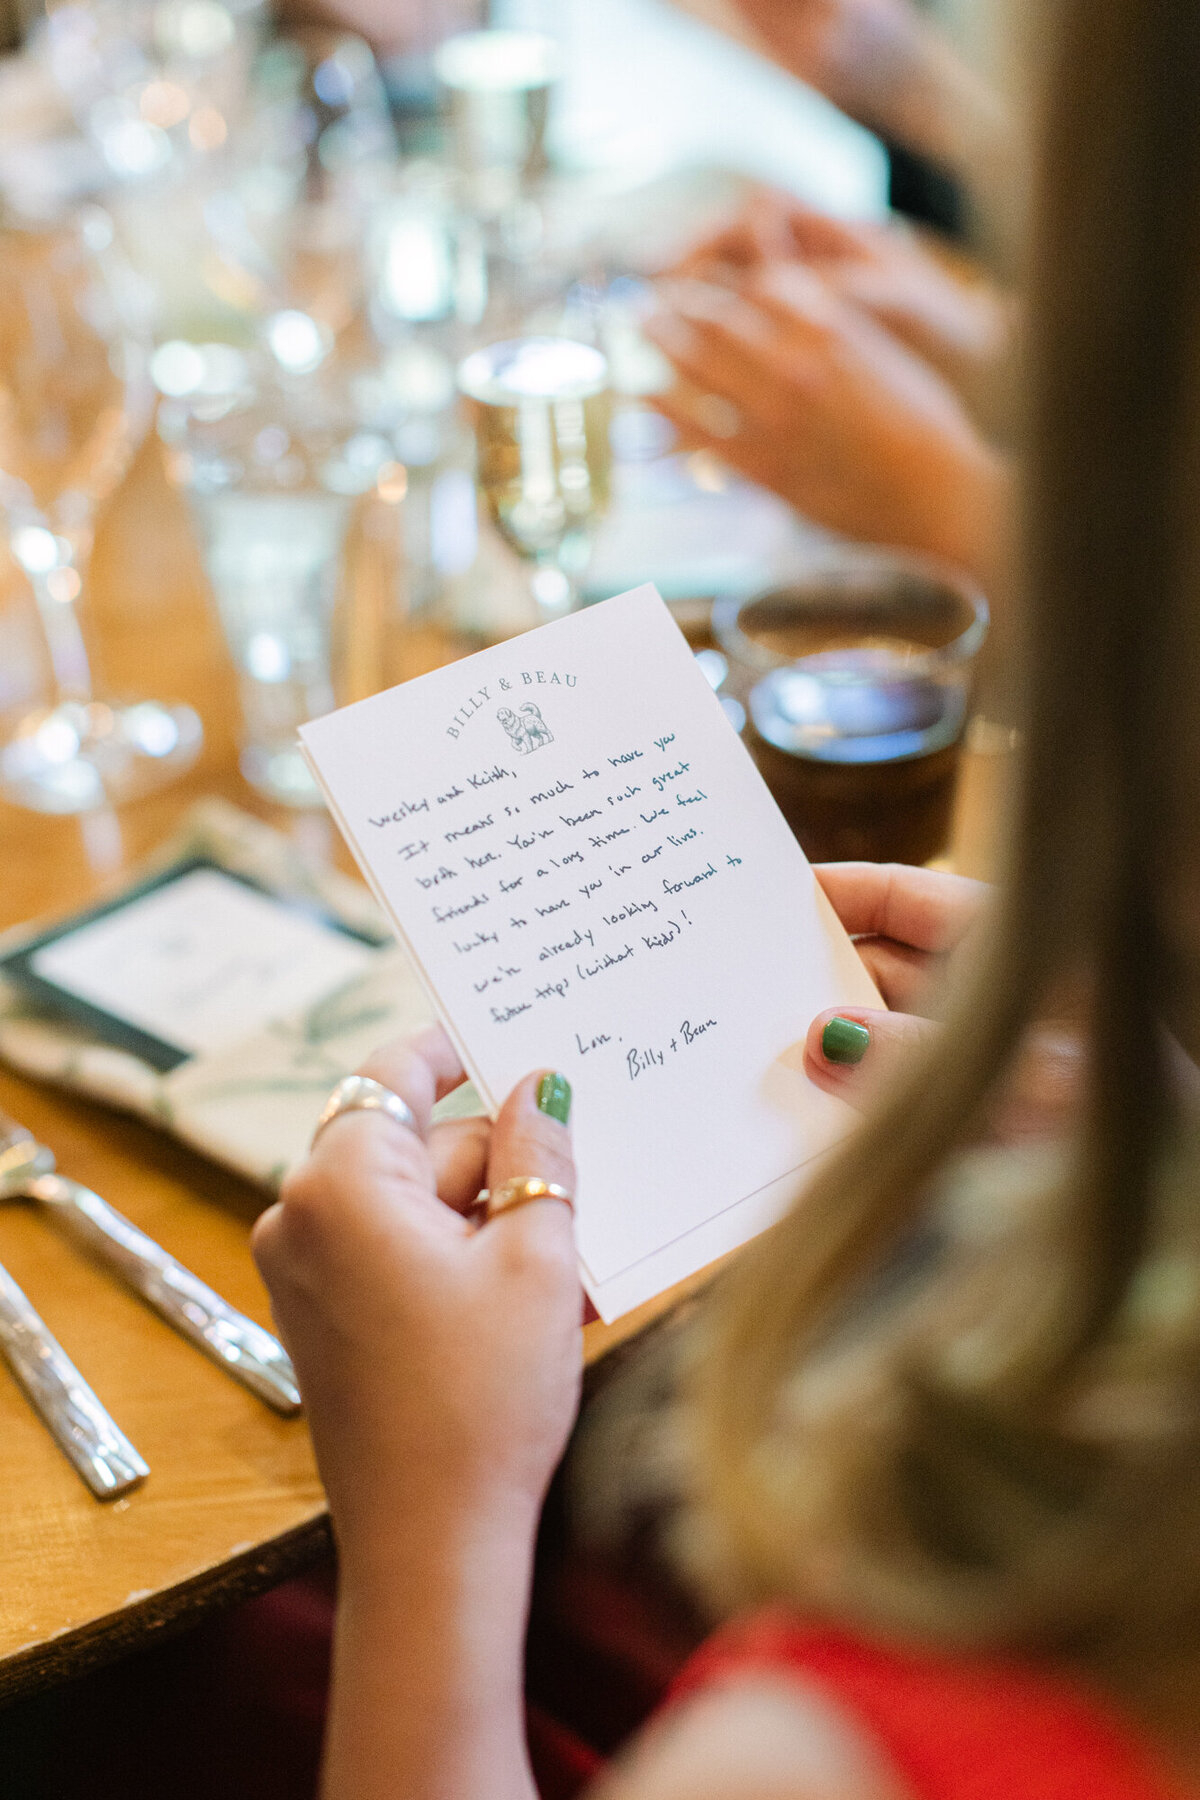 BILLY & BEAU
Wesley and Keith,
It means so much to have you
both here. You've been such great
friends for a long time. We feel
lucky to have you in our lives.
We're already looking forward to
future trips (without kids)!
Love,
Billy + Beau